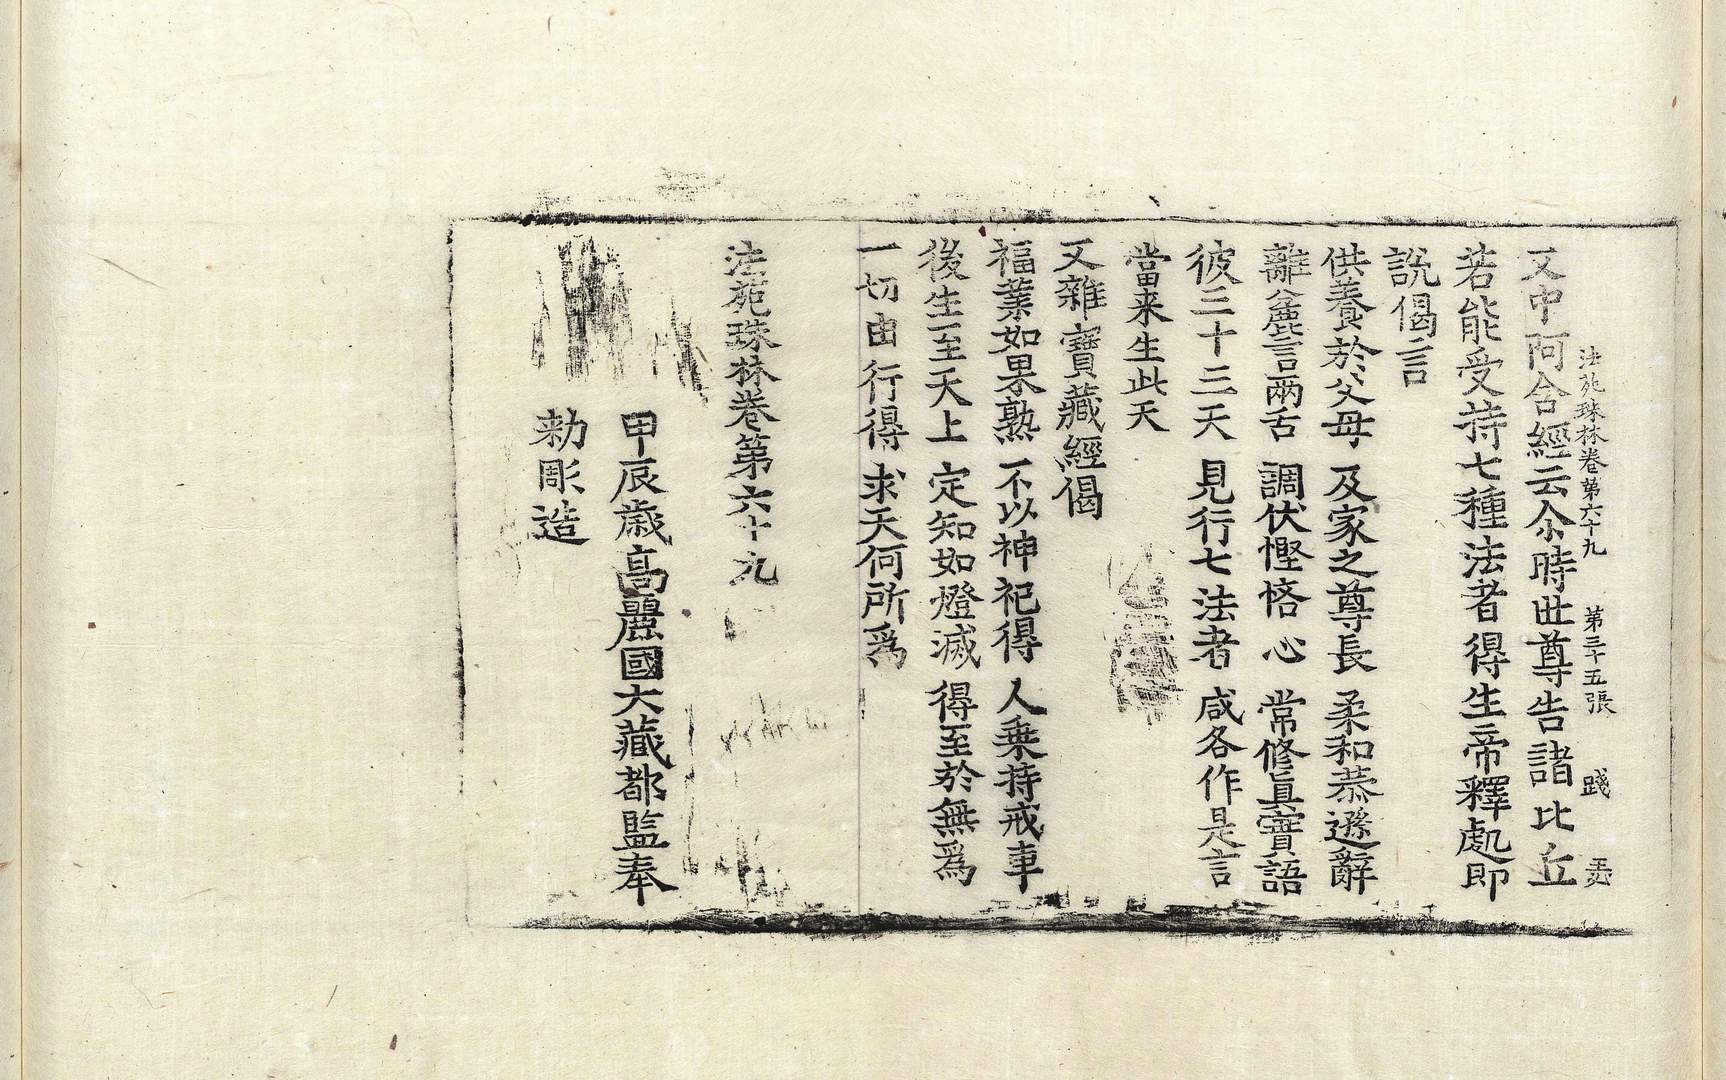 法苑珠林卷第六十九 第三十五張 踐
又中阿含經云尒時世尊告諸比丘
若能受持七種法者得生帝釋處即
說偈言
供養於父母 及家之尊長 柔和恭遜辭
離麁言兩舌 調伏慳悋心 常修眞實語
彼三十三天 見行七法者 咸各作是言
當来生此天
又雜寶藏經偈
福業如果熟 不以神祀得 人乗持戒車
後生至天上 定知如燈滅 得至於無爲
一切由行得 求天何所爲
法苑珠林卷第六十九
甲辰歲高麗國大藏都監奉
勑彫造